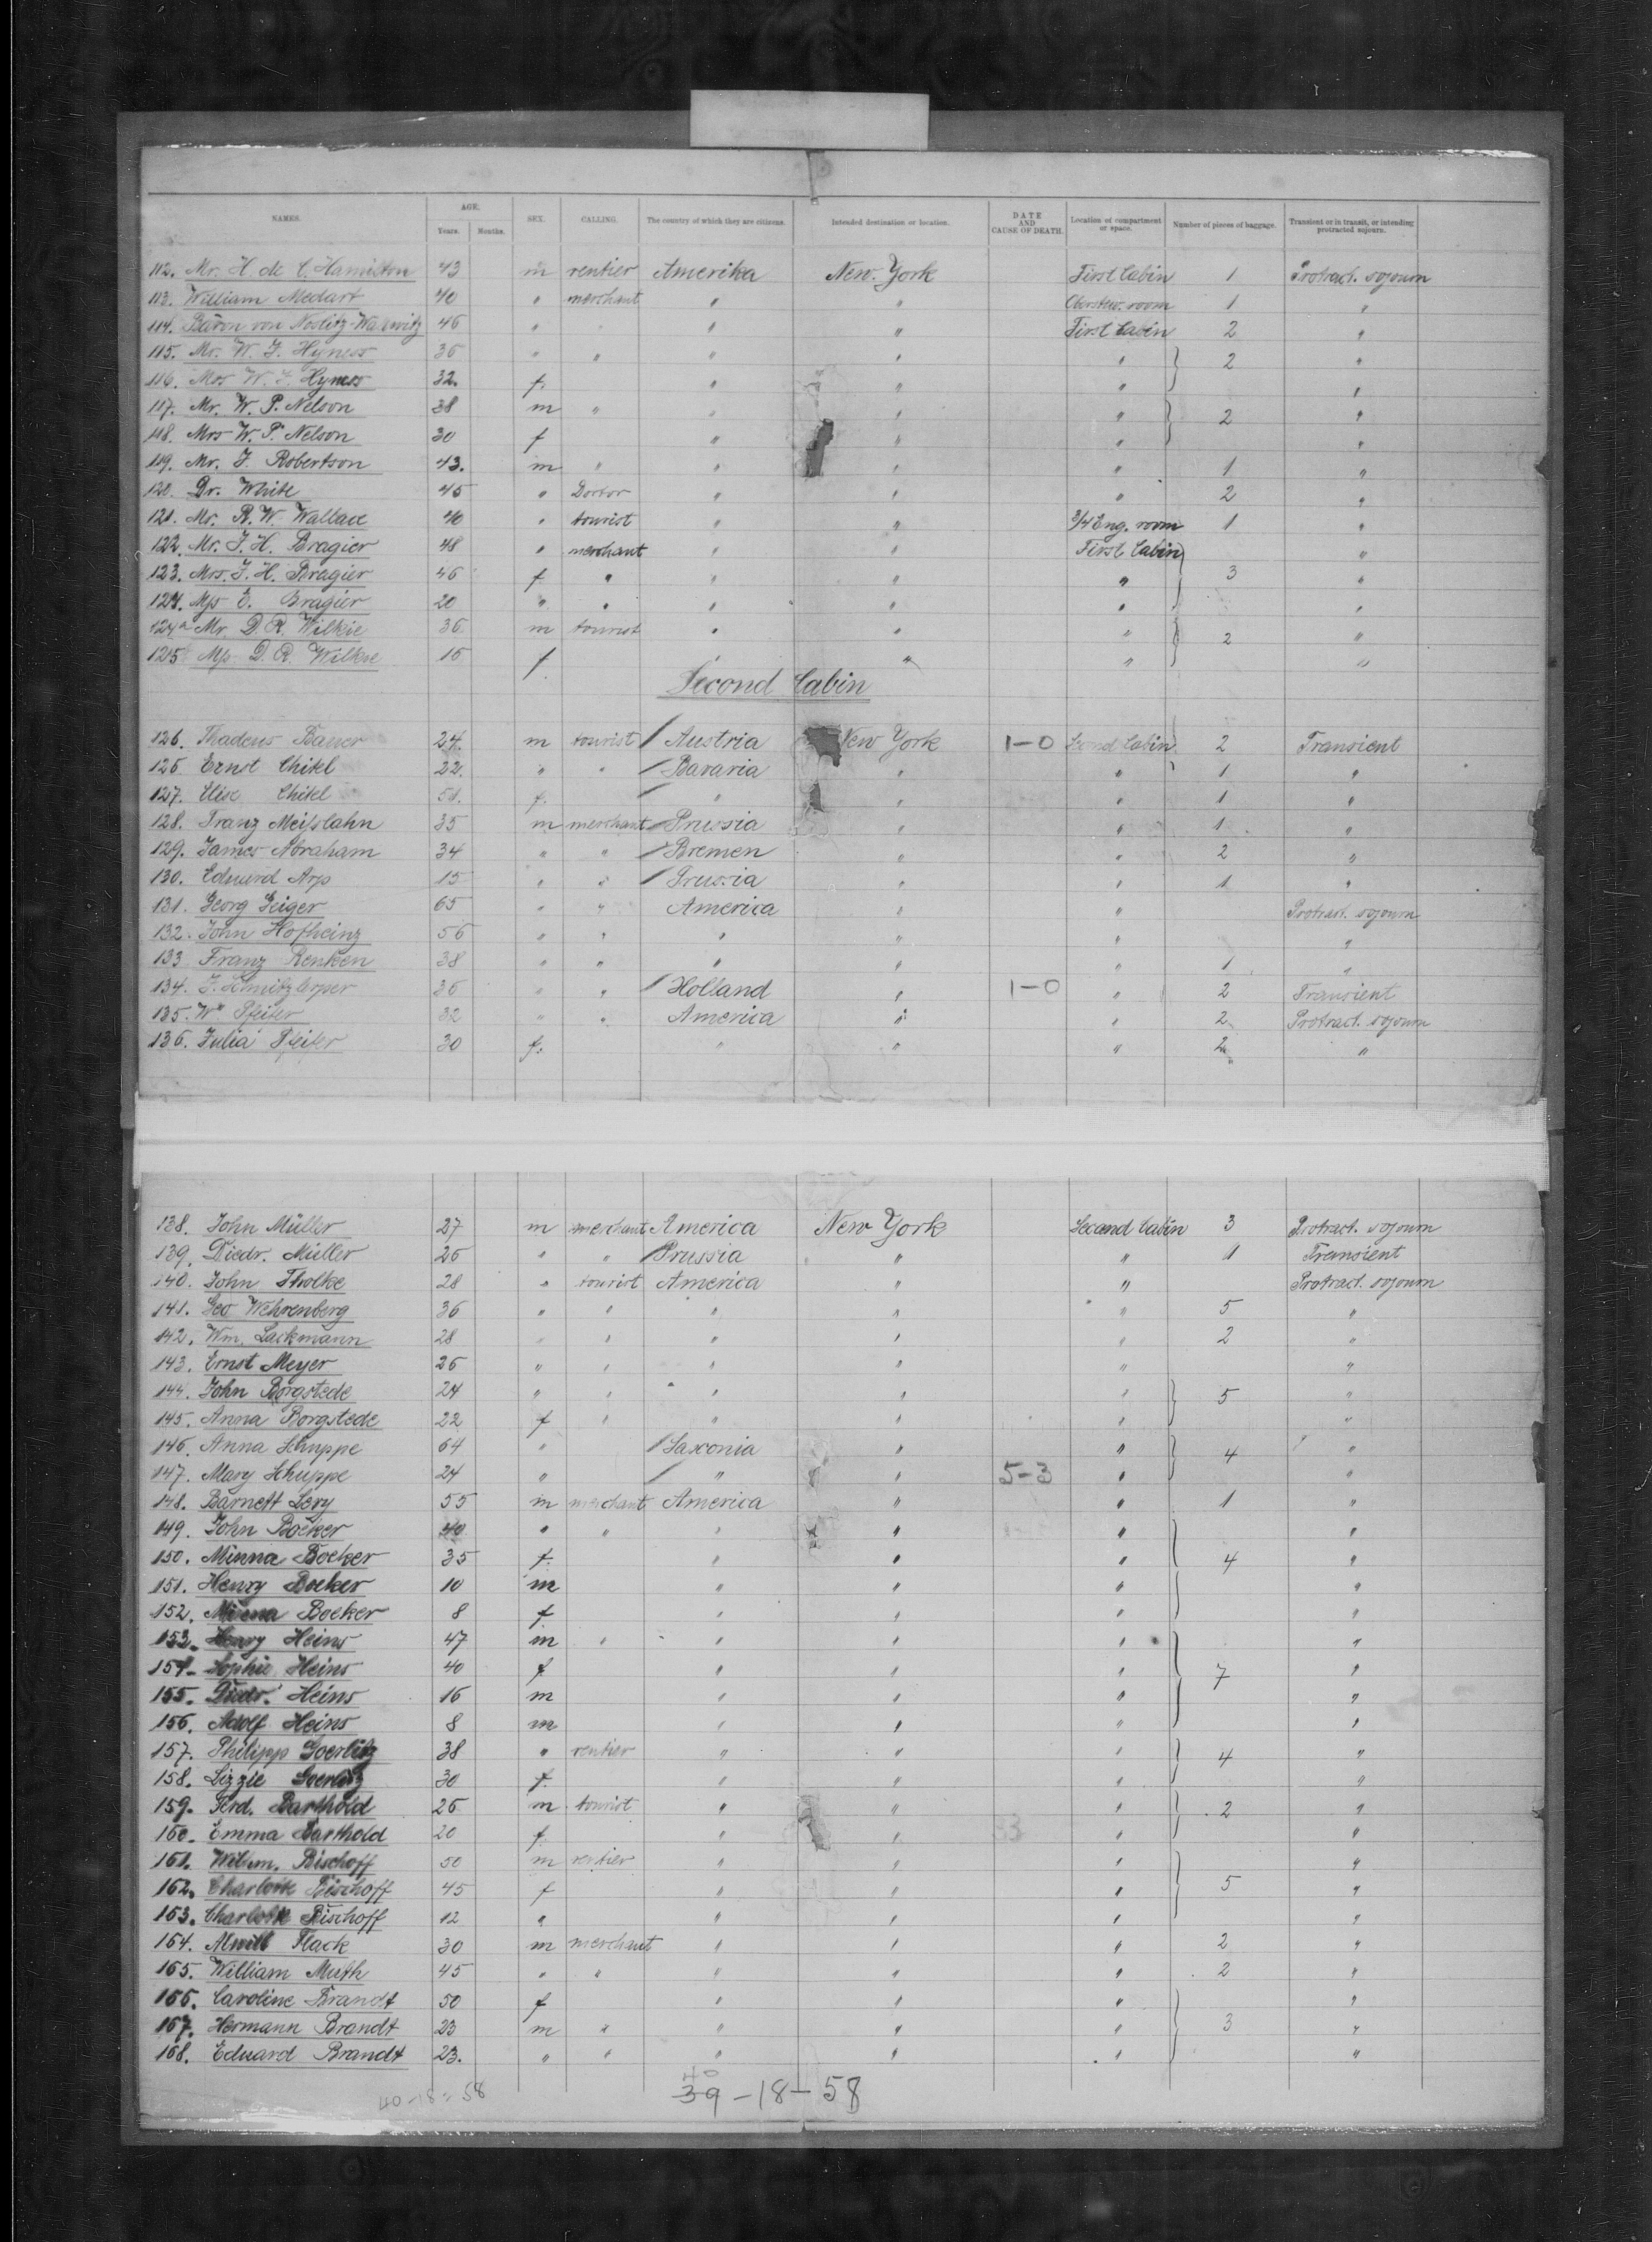 NAMES. AGE. Years. Months. SEX. CALLING. The country of which they are citizens. Intended destination or location. DATE AND CAUSE OF DEATH. Location of compartment or space. Number of pieces of baggage. Transient or in transit, or intending protracted sojourn.
112. Mr. H. de C. Hamilton 43 m rentier Amerika New York First Cabin 1 Protract. sojourn
113. William Medart 40 " merchant " " room 1 "
114. Baron von 46 " " " First Cabin 2 "
115. Mr. W. J. Hyness 36 " " " " " 2 "
116. Mrs W. J. Hyness 32. f. " " " "
117. Mr. W. P. Nelson 38 m " " " " 2 "
118. Mrs W. P. Nelson 30 f " " " "
119. Mr. J. Robertson 43. m " " " " 1 "
120. Dr. White 45 " Doctor " " " 2 "
121. Mr. R. W. Wallace 40 " tourist " " 3/4 Eng. room 1 "
122. Mr. J. H. Bragier 48 " merchant " " First Cabin "
123. Mrs. J. H. Bragier 46 f " " " " 3 "
124. Mss E. Bragier 20 " " " " " "
124a Mr. D. R. Wilkie 36 m tourist " " " 2 "
125 Mss D. R. Wilkie 16 f " " " "
Second Cabin
126. Thadeus Bauer 24. m tourist / Austria New York 1-0 Second Cabin 2 Transient
126 Ernst Chikel 22. " " / Bavaria " " 1 "
127. Elise Chikel 51. f. / " " " 1 "
128. Franz Meißlahn 35 m merchant / Prussia " " 1 "
129. James Abraham 34 " " / Bremen " " 2 "
130. Eduard Arp 15 " " / Prussia " " 1 "
131. Georg Geiger 65 " " America " " Protract. sojourn
132. John Hofheinz 56 " " " " " "
133 Franz Renken 38 " " " " " 1 "
134. J. 36 " " / Holland " 1-0 " 2 Transient
135. Wm Pfeifer 32 " " America " " 2 Protract. sojourn
136. Julia Pfeifer 30 f. " " " 2 "
138. John Müller 27 m merchant America New York Second Cabin 3 Protract. sojourn
139. Diedr. Müller 26 " " / Prussia " " 1 Transient
140. John Tholke 28 " tourist America " " Protract. sojourn
141. Geo Wehrenberg 36 " " " " " 5 "
142. Wm. Lackmann 28 " " " " " 2 "
143. Ernst Meyer 26 " " " " " "
144. John Borgstede 24 " " " " " 5 "
145. Anna Borgstede 22 f " " " " "
146. Anna Schuppe 64 " / Saxonia " " 4 "
147. Mary Schuppe 24 " / " " 5-3 " "
148. Barnett Levy 55 m merchant America " " 1 "
149. John Boeker 40 " " " " " "
150. Minna Boeker 35 f. " " " 4 "
151. Henry Boeker 10 m " " " "
152. Minna Boeker 8 f " " " "
153. Henry Heins 47 m " " " " "
154. Sophie Heins 40 f " " " 7 "
155. Diedr. Heins 16 m " " " "
156. Adolf Heins 8 m " " " "
157. Philipp Goerlitz 38 " rentier " " " 4 "
158. Lizzie Goerlitz 30 f. " " " "
159. Ferd. Barthold 26 m tourist " " " 2 "
160. Emma Barthold 20 f " " " "
161. Wilhm. Bischoff 50 m rentier " " " "
162. Charlotte Bischoff 45 f " " " 5 "
163. Charlotte Bischoff 12 " " " " "
164. Flack 30 m merchant " " " 2 "
165. William Muth 45 " " " " " 2 "
166. Caroline Brandt 50 f " " " "
167. Hermann Brandt 23 m " " " " 3 "
168. Eduard Brandt 23. " " " " " "
40
40-18-58 39-18-58